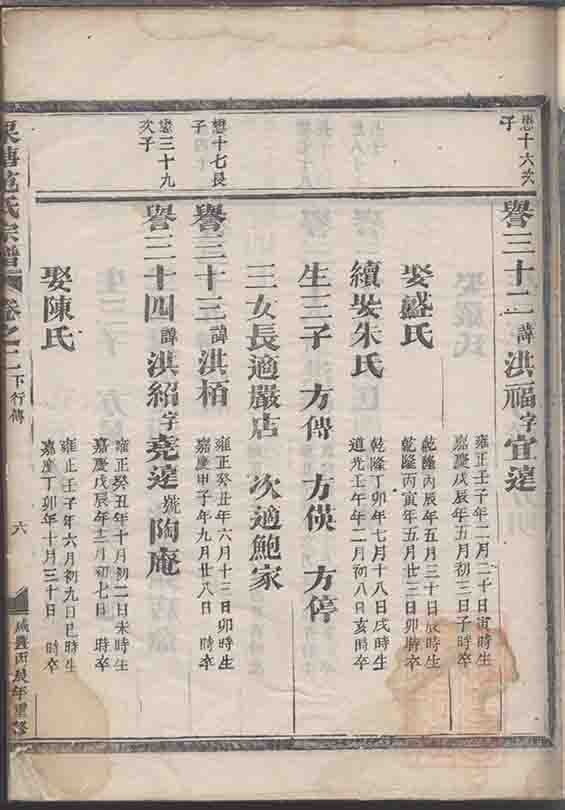 懋十六次
子
譽三十二諱洪福字宜遠
雍正壬子年二月二十日寅時生
嘉慶戊辰年五月初三日子時卒
娶盛氏
乾隆丙辰年五月三十日辰時生
乾隆丙寅年五月廿三日卯時卒
續娶朱氏
乾隆丁卯年七月十八日戌時生
道光壬午年二月初八日亥時卒
生三子 方傳 方偀 方停
三女長適嚴店 次適鮑家
懋十七長
子
譽三十三諱洪栢
雍正癸丑年六月十三日卯時生
嘉慶甲子年九月廿八日 時卒
懋三十九
次子
譽三十四諱洪紹字堯達號陶庵
雍正癸丑年十月初二日未時生
嘉慶戊辰年十二月初七日 時卒
娶陳氏
雍正壬子年六月初九日巳時生
嘉慶丁卯年十月三十日 時卒
氏宗譜 卷之二 下行傳 六 咸豐丙辰年重修